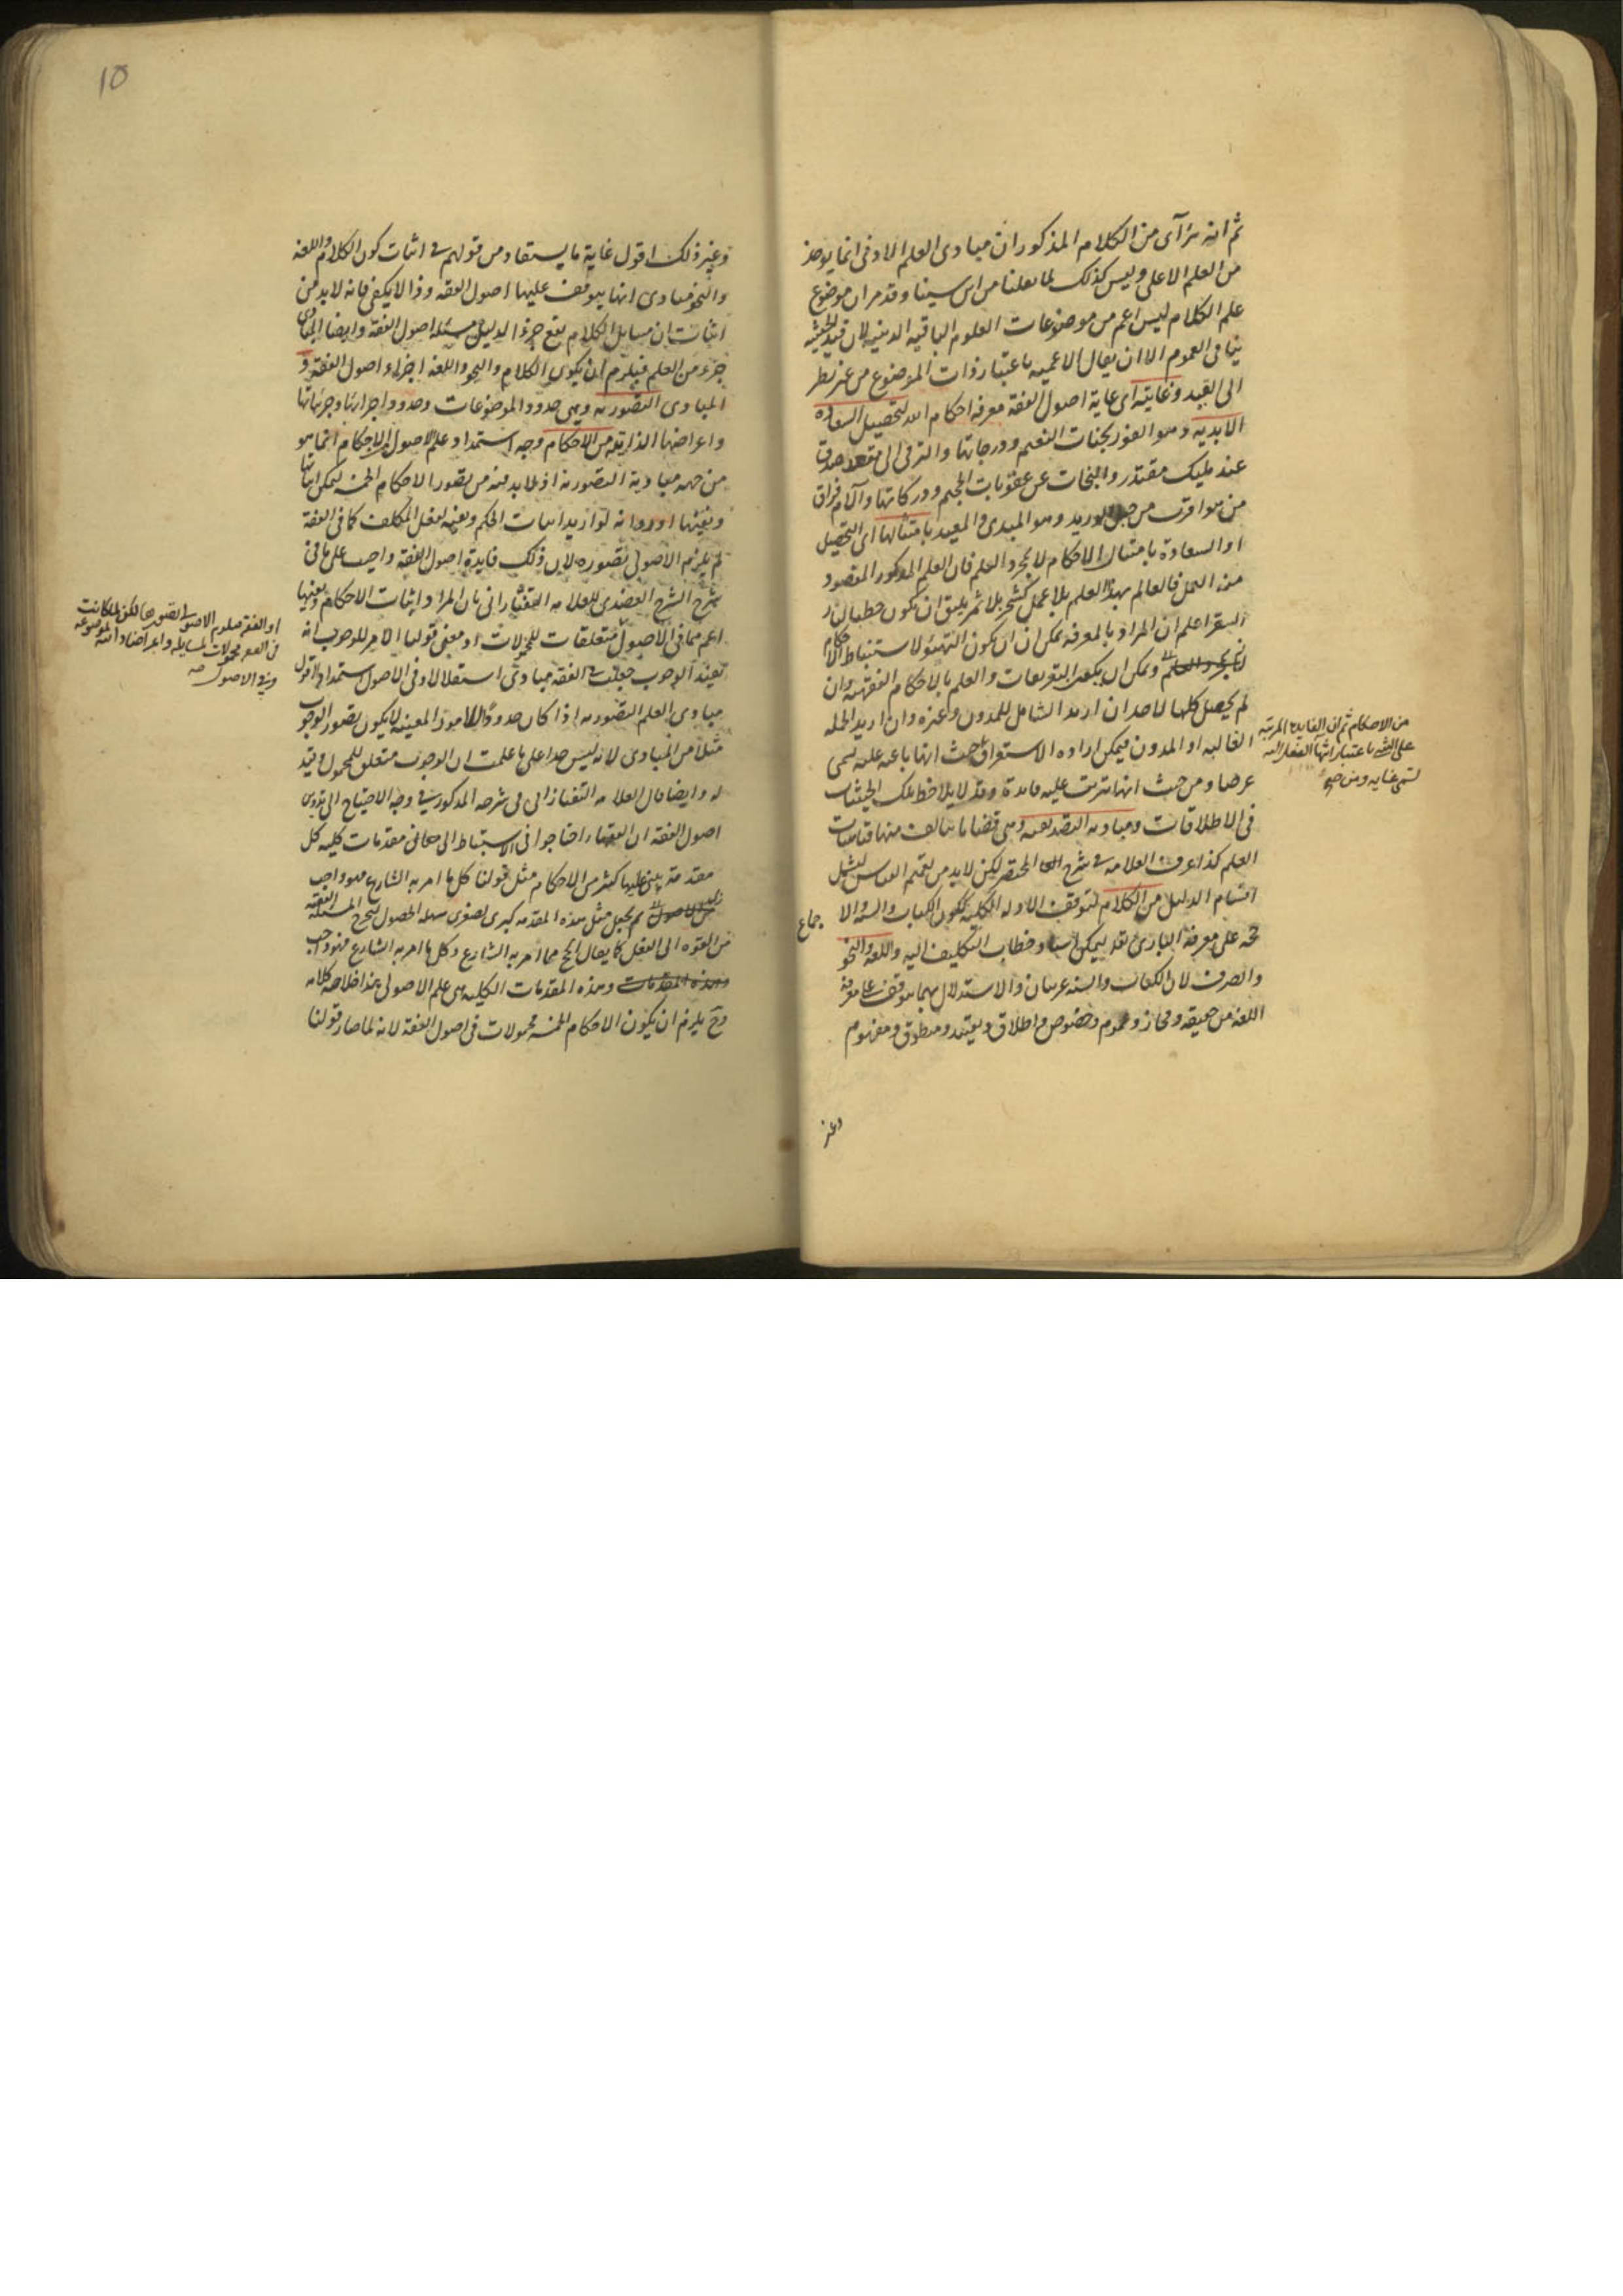 ثم انه يتراآى من الكلام المذكور ان مبادى العلم الادنى انما يوخذ
من العلم الاعلى وليس كذلك لما نقلنا من ابن سينا وقد مر ان موضوع
علم الكلام ليس اعم من موضوعات العلوم الباقية الدينية لان قيد الحيثية
ينافى العموم الا ان يقال الاعمية باعتبار ذات الموضوع من غير نظر
الى القيد وغايته اى غاية اصول الفقه معرفة احكام الله لتحصيل السعادة
الابدية وهو الفوز بجنات النعيم ودرجاتها والترقى الى مقعد صدق
عند مليك مقتدر والنجات عن عقوبات الجحيم ودركاتها وآلام فراق
من هو اقرب من حبل الوريد وهو المبدئ والمعيد بامتثالها اى التحصيل
او السعادة بامتثال الاحكام لا بمجرد العلم فان العلم المذكور المقصود
منه العمل فالعالم بهذا العلم بلا عمل كشجر بلا ثمر يليق ان يكون حطبا لنار
السقر اعلم ان المراد بالمعرفة يمكن ان يكون التهيئو لاستنباط الاحكام
ويمكن ان يكون التفريعات والعلم بالاحكام الفقهية وان
لم يحصل كلها لاحد ان اريد الشامل للمدون وغيره وان اريد الجملة
الغالبة او المدون فيمكن ارادة الاستغراق حيث انها باعثة عليه يسمى
غرضا ومن حيث انها يترتب عليه فائدة وقد لا يلاحظ تلك الحيثيات
فى الاطلاقات ومباديه التصديقية وهى قضايا يتالف منها قياسات
العلم كذا عرف العلامة فى شرح المختصر لكن لا بد من تعميم القياس ليشمل
اقسام الدليل من الكلام لتوقف الادلة الكلية ككون الكتاب والسنة والا
جماع
حجة على معرفة البارى تعالى ليمكن اسناد خطاب التكليف اليه واللغة والنحو
والصرف لان الكتاب والسنة عربيان والاستدلال بهما يتوقف على معرفة
اللغة من حقيقة ومجاز وعموم وخصوص واطلاق وتقييد ومنطوق ومفهوم
وغير
من الاحكام ثم ان الفايدة المرتبة
على الشئ باعتبار انتهاء الفعل اليه
تسمى غاية ومن صح
10
وغير ذلك اقول غاية ما يستفاد من قولهم فى اثبات كون الكلام واللغة
والنحو مبادى انها يتوقف عليها اصول الفقه وذا لا يكفى فانه لا بد من
اثبات ان مسايل الكلام يقع جزء الدليل مسئلة اصول الفقه وايضا المبادى
جزء من العلم فيلزم ان يكون الكلام والنحو واللغة اجزاء اصول الفقه و
المبادى التصورية وهى حدود الموضوعات وحدود اجزائها وجزئياتها
واعراضها الذاتية من الاحكام وجه استمداد علم الاصول الاحكام انما هو
من جهة مبادية التصورية اذ لا بد فيه من تصور الاحكام الخمسة ليمكن اثباتها
ونفيها اورد انه لو اريد اثبات الحكم ونفيه لفعل المكلف كما فى الفقه
لم يلزم الاصولى تصوره لان ذلك فايدة اصول الفقه واجيب على ما فى
شرح الشرح العضدى للعلامة التفتازانى بان المراد اثبات الاحكام ونفيها
اعم مما فى الاصول متعلقات للمحمولات اذ معنى قولنا الامر للوجوب انه
يفيد الوجوب جعلت فى الفقه مبادى استقلالا وفى الاصول استمدادا اقول
مبادى العلم التصورية اذا كان حدود الامور المعينة لا يكون تصور الوجوب
مثلا من المبادى لانه ليس حدا على ما علمت ان الوجوب متعلق للمحمول وقيد
له وايضا قال العلامة التفتازانى فى شرحه المذكور فى وجه الاحتياج الى تدوين
اصول الفقه ان الفقهاء احتاجوا فى الاستنباط الى معانى مقدمات كلية كل
مقدمة يبنى عليها كثير من الاحكام مثل قولنا كل ما امر به الشارع فهو واجب
ثم يجعل مثل هذه المقدمة كبرى لصغرى سهلة الحصول ليخرج المسئلة الفقهية
من القوة الى الفعل كما يقال الحج مما امر به الشارع وكل ما امر به الشارع فهو واجب
وهذه المقدمات وهذه المقدمات الكلية هى علم الاصولى هذا خلاصة كلامه
وح يلزم ان يكون الاحكام الخمسة محمولات فى اصول الفقه لانه لما صار قولنا
او الفقه فيلزم الاصولى تصورها لكن لما كانت
فى الفقه محمولات لمسايله واعراضا ذاتية لموضوعه
وفى الاصول صح